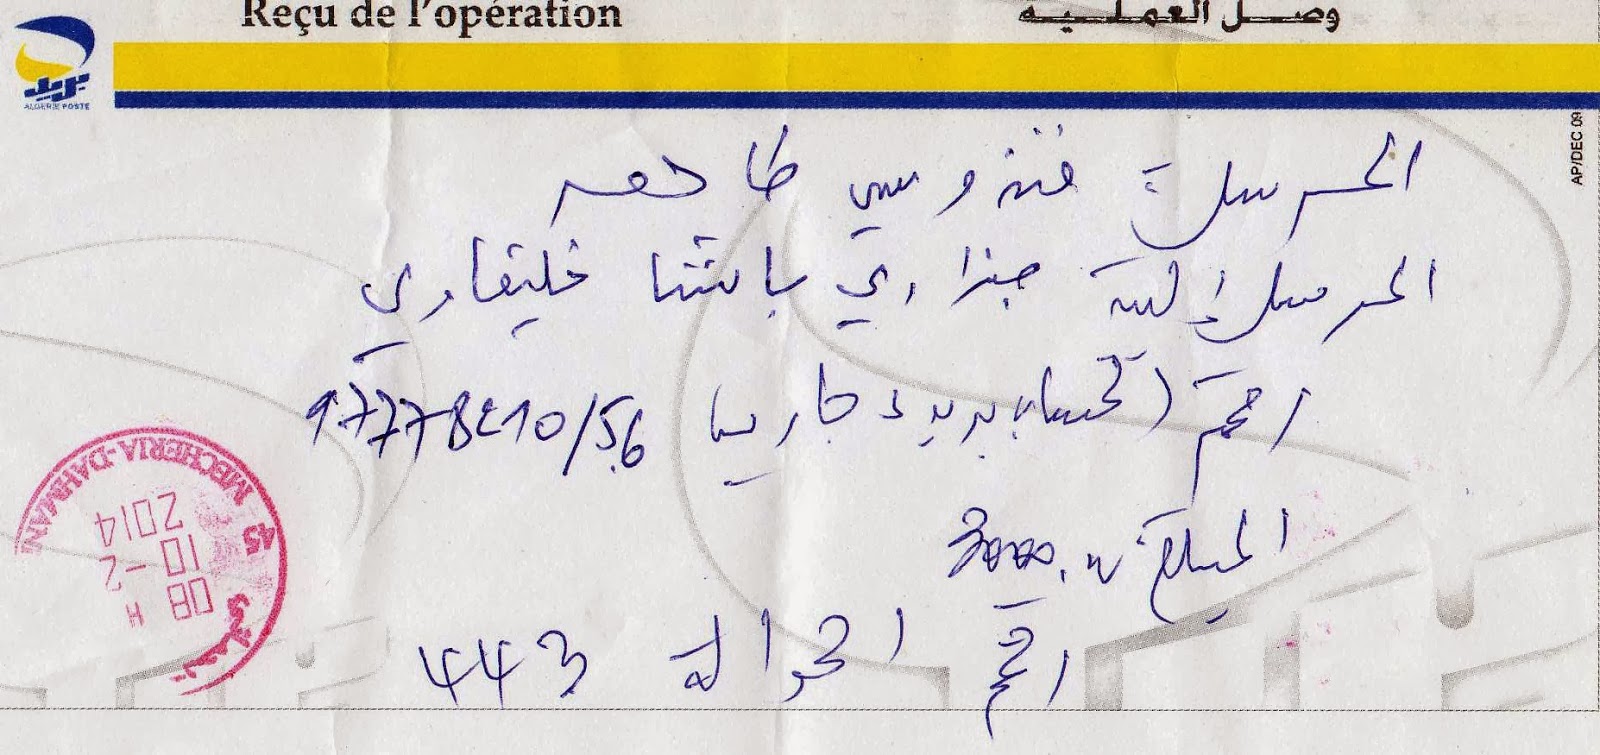 Reçu de l'opération وصل العملية
بريد
ALGERIE POSTE
AP/DEC 09
المرسل: قندوسي طاهر
المرسل إليه جزاري باشا
رقم الحساب بريد جاري 97778210/56
المبلغ:
رقم الحوالة 443
MECHERIA-DAHMANI
45
2014
10-2
08 H